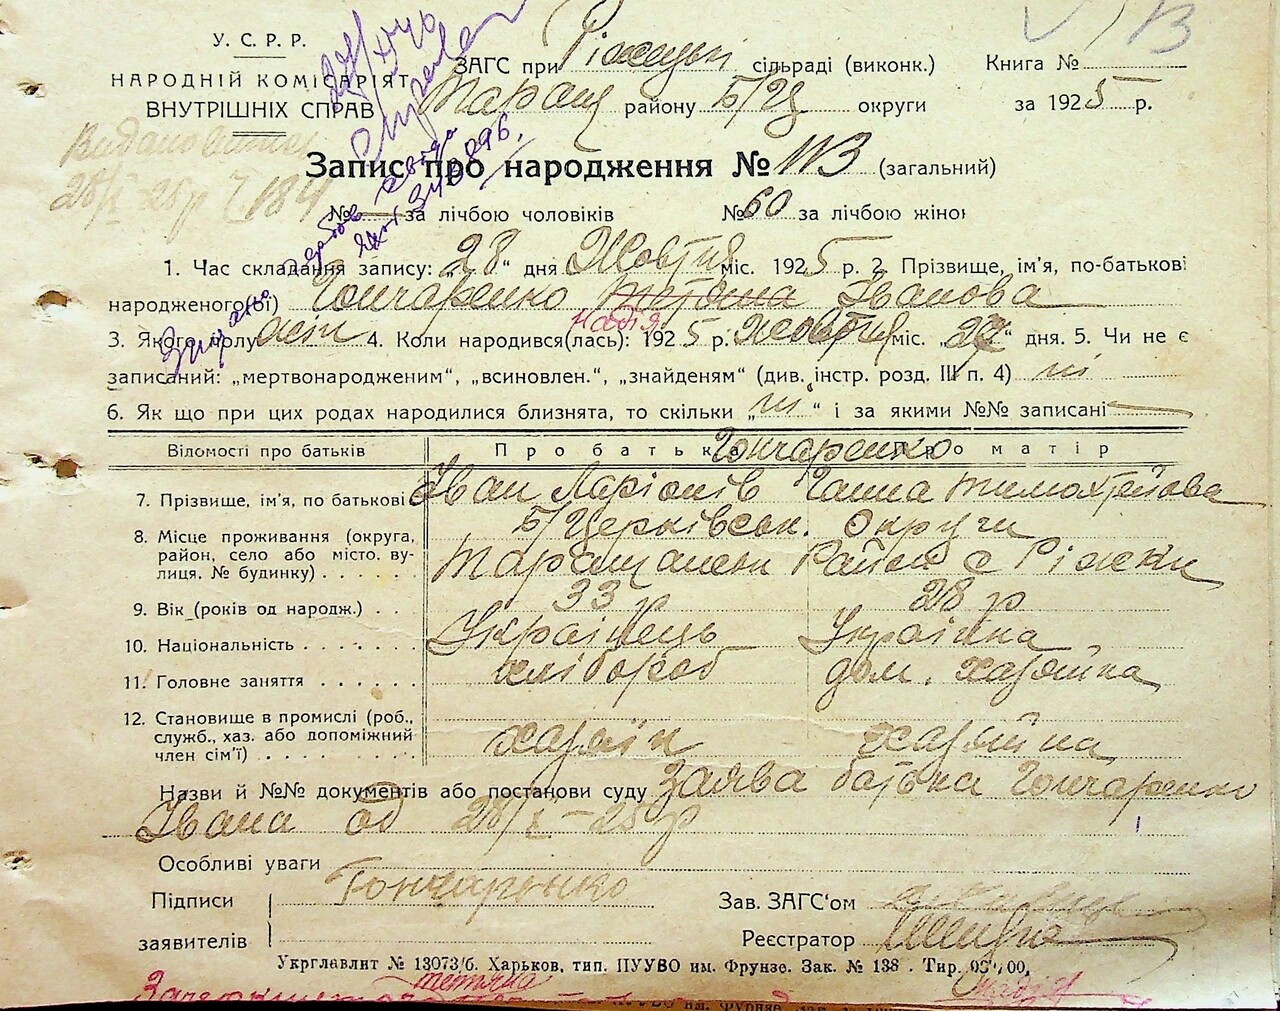 У. С. Р. Р.
НАРОДНІЙ КОМІСАРІЯТ
ВНУТРІШНІХ СПРАВ
ЗАГС при сільраді (виконк.) Книга №
Таращ району Б/Ц округи за 1925 р.
Запис про народження № 113 (загальний)
№ — за лічбою чоловіків № 60 за лічбою жінок
1. Час складання запису: „28“ дня Жовтня міс. 1925 р. 2. Прізвище, ім'я, по-батькові
народженого(ої) Гончаренко Тетяна Іванова
Надія
3. Якого полу жін 4. Коли народився(лась): 1925 р. Жовтня міс. „27“ дня. 5. Чи не є
записаний: „мертвонародженим“, „всиновлен.“, „знайденям“ (див. інстр. розд. III п. 4) ні
6. Як що при цих родах народилися близнята, то скільки „ні“ і за якими №№ записані —
Відомості про батьків Про батька Про матір
Гончаренко
7. Прізвище, ім'я, по батькові Іван Ларіонів Ганна Тимохтейова
8. Місце проживання (округа, район, село або місто, вулиця, № будинку) . . . . . Б/Церківськ. Округи
Район с Ріжки
9. Вік (років од народж.) . . 33 р 28 р
10. Національність . . . . . . . Українець Українка
11. Головне заняття . . . . . . хлібороб дом. хазяйка
12. Становище в промислі (роб.,
служб., хаз. або допоміжний
член сім'ї) . . . . . . . . . хазяїн хазяйка
Назви й №№ документів або постанови суду Заява батька Гончаренко
Івана од 28/X-25 р
Особливі уваги
Підписи Гончаренко Зав. ЗАГС'ом
заявителів Реєстратор
Укрглавліт № 13073/б. Харьков, тип. ПУУВО им. Фрунзе. Зак. № 138 . Тир.
тетяна